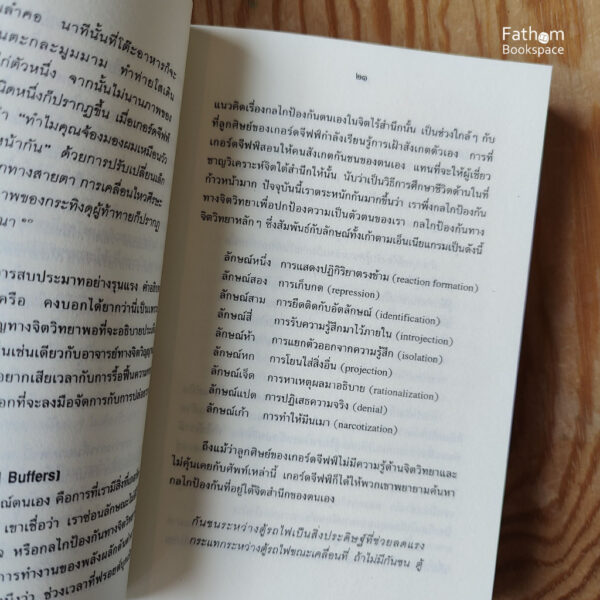 นลำคอ นาทีนั้นที่โต๊ะอาหารก็จะ
นตะกละมูมมาม ทำท่ายโตเดิน
ไก่ตัวหนึ่ง จากนั้นไม่นานภาพของ
นิดหนึ่งก็ปรากฏขึ้น เมื่อเกอร์ดจีฟฟ์
"ทำไมคุณจ้องมองผมเหมือนวัว
หน้ากัน" ด้วยการปรับเปลี่ยนเล็ก
ทางสายตา การเคลื่อนไหวศีรษะ
าพของกระทิงดุผู้ท้าทายก็ปรากฏ
การสบประมาทอย่างรุนแรง
เครือ คงบอกได้ยากว่านี่เป็นเพราะ
ญทางจิตวิทยาพอที่จะอธิบาย
นเช่นเดียวกับอาจารย์ทางจิตวิญญาณ
อยากเสียเวลากับการรื้อฟื้นความ
อกที่จะลงมือจัดการกับการปล่อย
Buffers]
ณ์ตนเอง คือการที่เรามีสิ่งที่
เขาเชื่อว่า เราซ่อนลักษณะ
หรือกลไกป้องกันทางจิตวิทยา
การทำงานของพลังผลักดัน
ช่วงเวลาที่ฟรอยด์
Fathom
Bookspace
๒๑
แนวคิดเรื่องกลไกป้องกันตนเองในจิตไร้สำนึกนั้น เป็นช่วงใกล้ๆ กับ
ที่ลูกศิษย์ของเกอร์ดจีฟฟ์กำลังเรียนรู้การเฝ้าสังเกตตัวเอง การที่
เกอร์ดจีฟฟ์สอนให้คนสังเกตกันชนของตนเอง แทนที่จะให้ผู้เชี่ยว
ชาญวิเคราะห์จิตใต้สำนึกให้นั้น นับว่าเป็นวิธีการศึกษาชีวิตด้านในที่
ก้าวหน้ามาก ปัจจุบันนี้เราตระหนักกันมากขึ้นว่า เราพึ่งกลไกป้องกัน
ทางจิตวิทยาเพื่อปกป้องความเป็นตัวตนของเรา กลไกป้องกันทาง
จิตวิทยาหลักๆ ซึ่งสัมพันธ์กับลักษณ์ทั้งเก้าตามเอ็นเนียแกรมเป็นดังนี้
ลักษณ์หนึ่ง การแสดงปฏิกิริยาตรงข้าม (reaction formation)
ลักษณ์สอง การเก็บกด (repression)
ลักษณ์สาม การยึดติดกับอัตลักษณ์ (identification)
ลักษณ์สี่ การรับความรู้สึกมาไว้ภายใน (introjection)
ลักษณ์ห้า การแยกตัวออกจากความรู้สึก (isolation)
ลักษณ์หก การโยนใส่สิ่งอื่น (projection)
ลักษณ์เจ็ด การหาเหตุผลมาอธิบาย (rationalization)
ลักษณ์แปด การปฏิเสธความจริง (denial)
ลักษณ์เก้า การทำให้มึนเมา (narcotization)
ถึงแม้ว่าลูกศิษย์ของเกอร์ดจีฟฟ์ไม่มีความรู้ด้านจิตวิทยาและ
ไม่คุ้นเคยกับศัพท์เหล่านี้ เกอร์ดจีฟฟ์ก็ได้ให้พวกเขาพยายามค้นหา
กลไกป้องกันที่อยู่ใต้จิตสำนึกของตนเอง
กันชนระหว่างตู้รถไฟเป็นสิ่งประดิษฐ์ที่ช่วยลดแรง
กระแทกระหว่างตู้รถไฟขณะเคลื่อนที่ ถ้าไม่มีกันชน ตู้